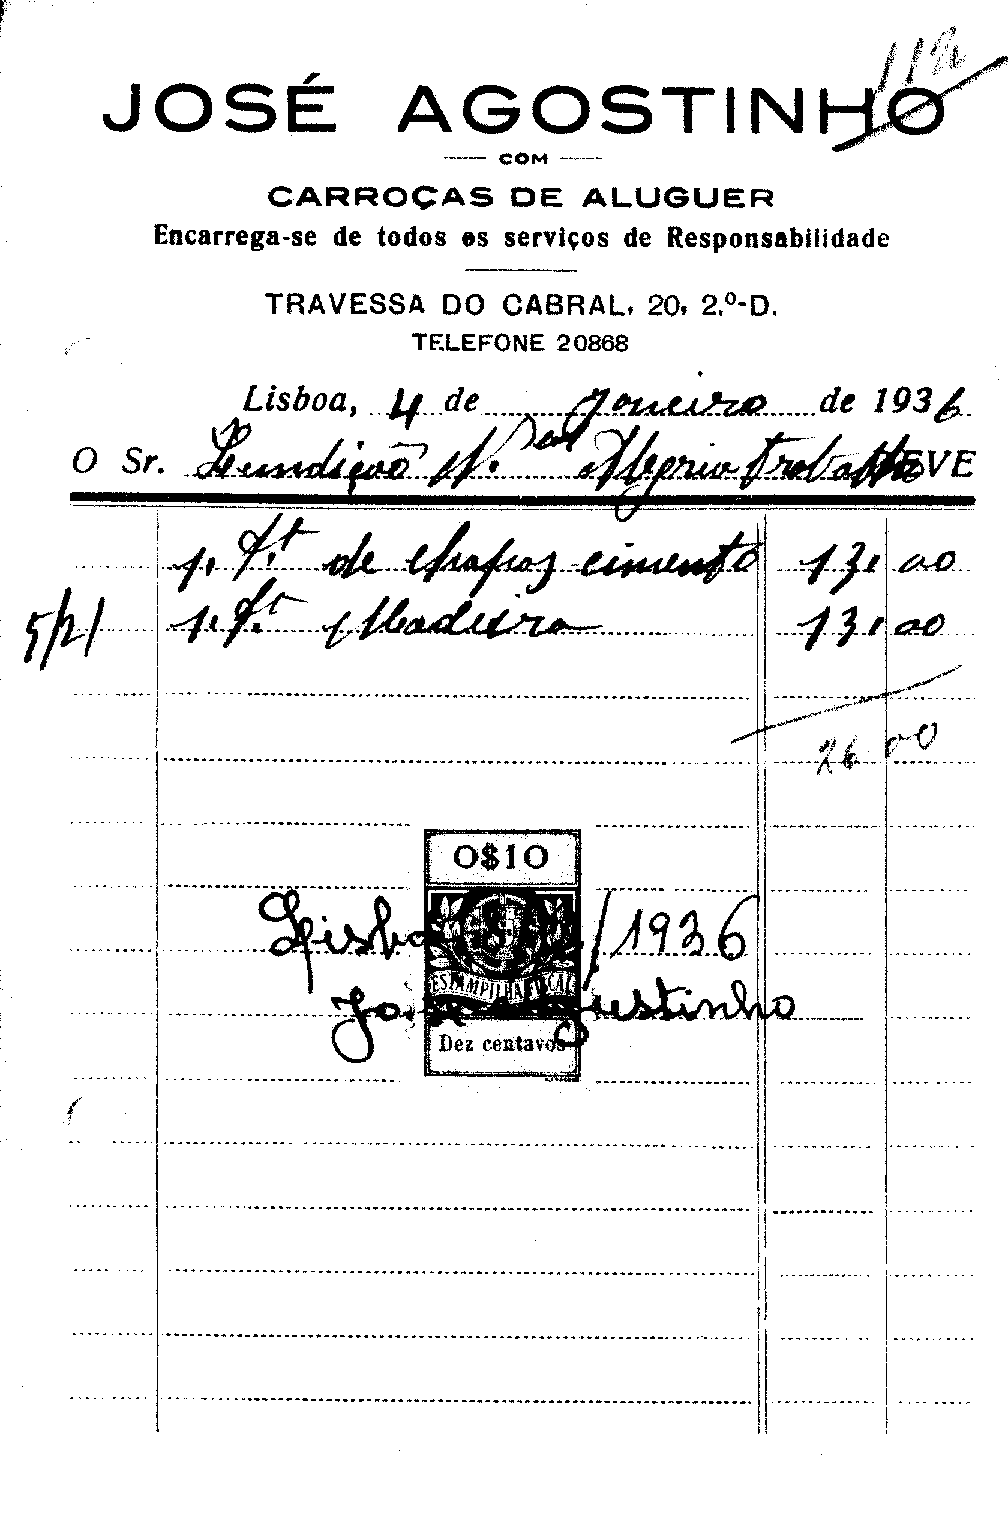 112
JOSÉ AGOSTINHO
COM
CARROÇAS DE ALUGUER
Encarrega-se de todos os serviços de Responsabilidade
TRAVESSA DO CABRAL, 20, 2.º-D.
TELEFONE 20868
Lisboa, 4 de Janeiro de 1936
O Sr. Fundição N. DEVE
1. f.t de chapas cimento 13,00
1. f.t Madeira 13,00
26 00
0$10
Lisboa /1936
ESTAMPILHA FISCAL
José Agustinho
Dez centavos